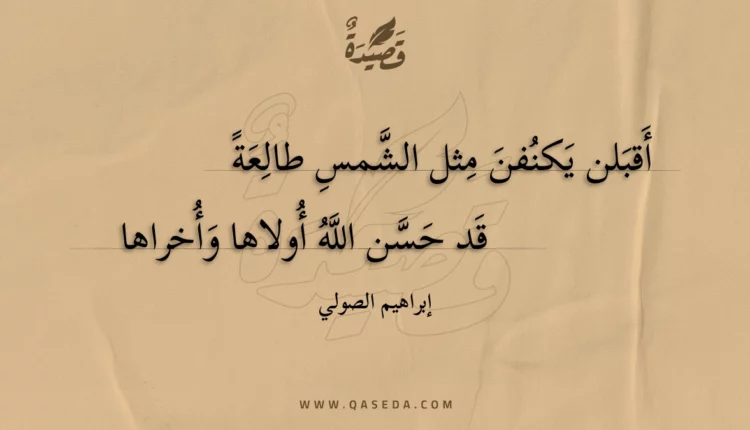 قَصِيْدَةٌ
أَقبَلن يَكنُفنَ مِثل الشَّمسِ طالِعَةً
قَد حَسَّن اللَّهُ أُولاها وَأُخراها
إبراهيم الصولي
WWW.QASEDA.COM